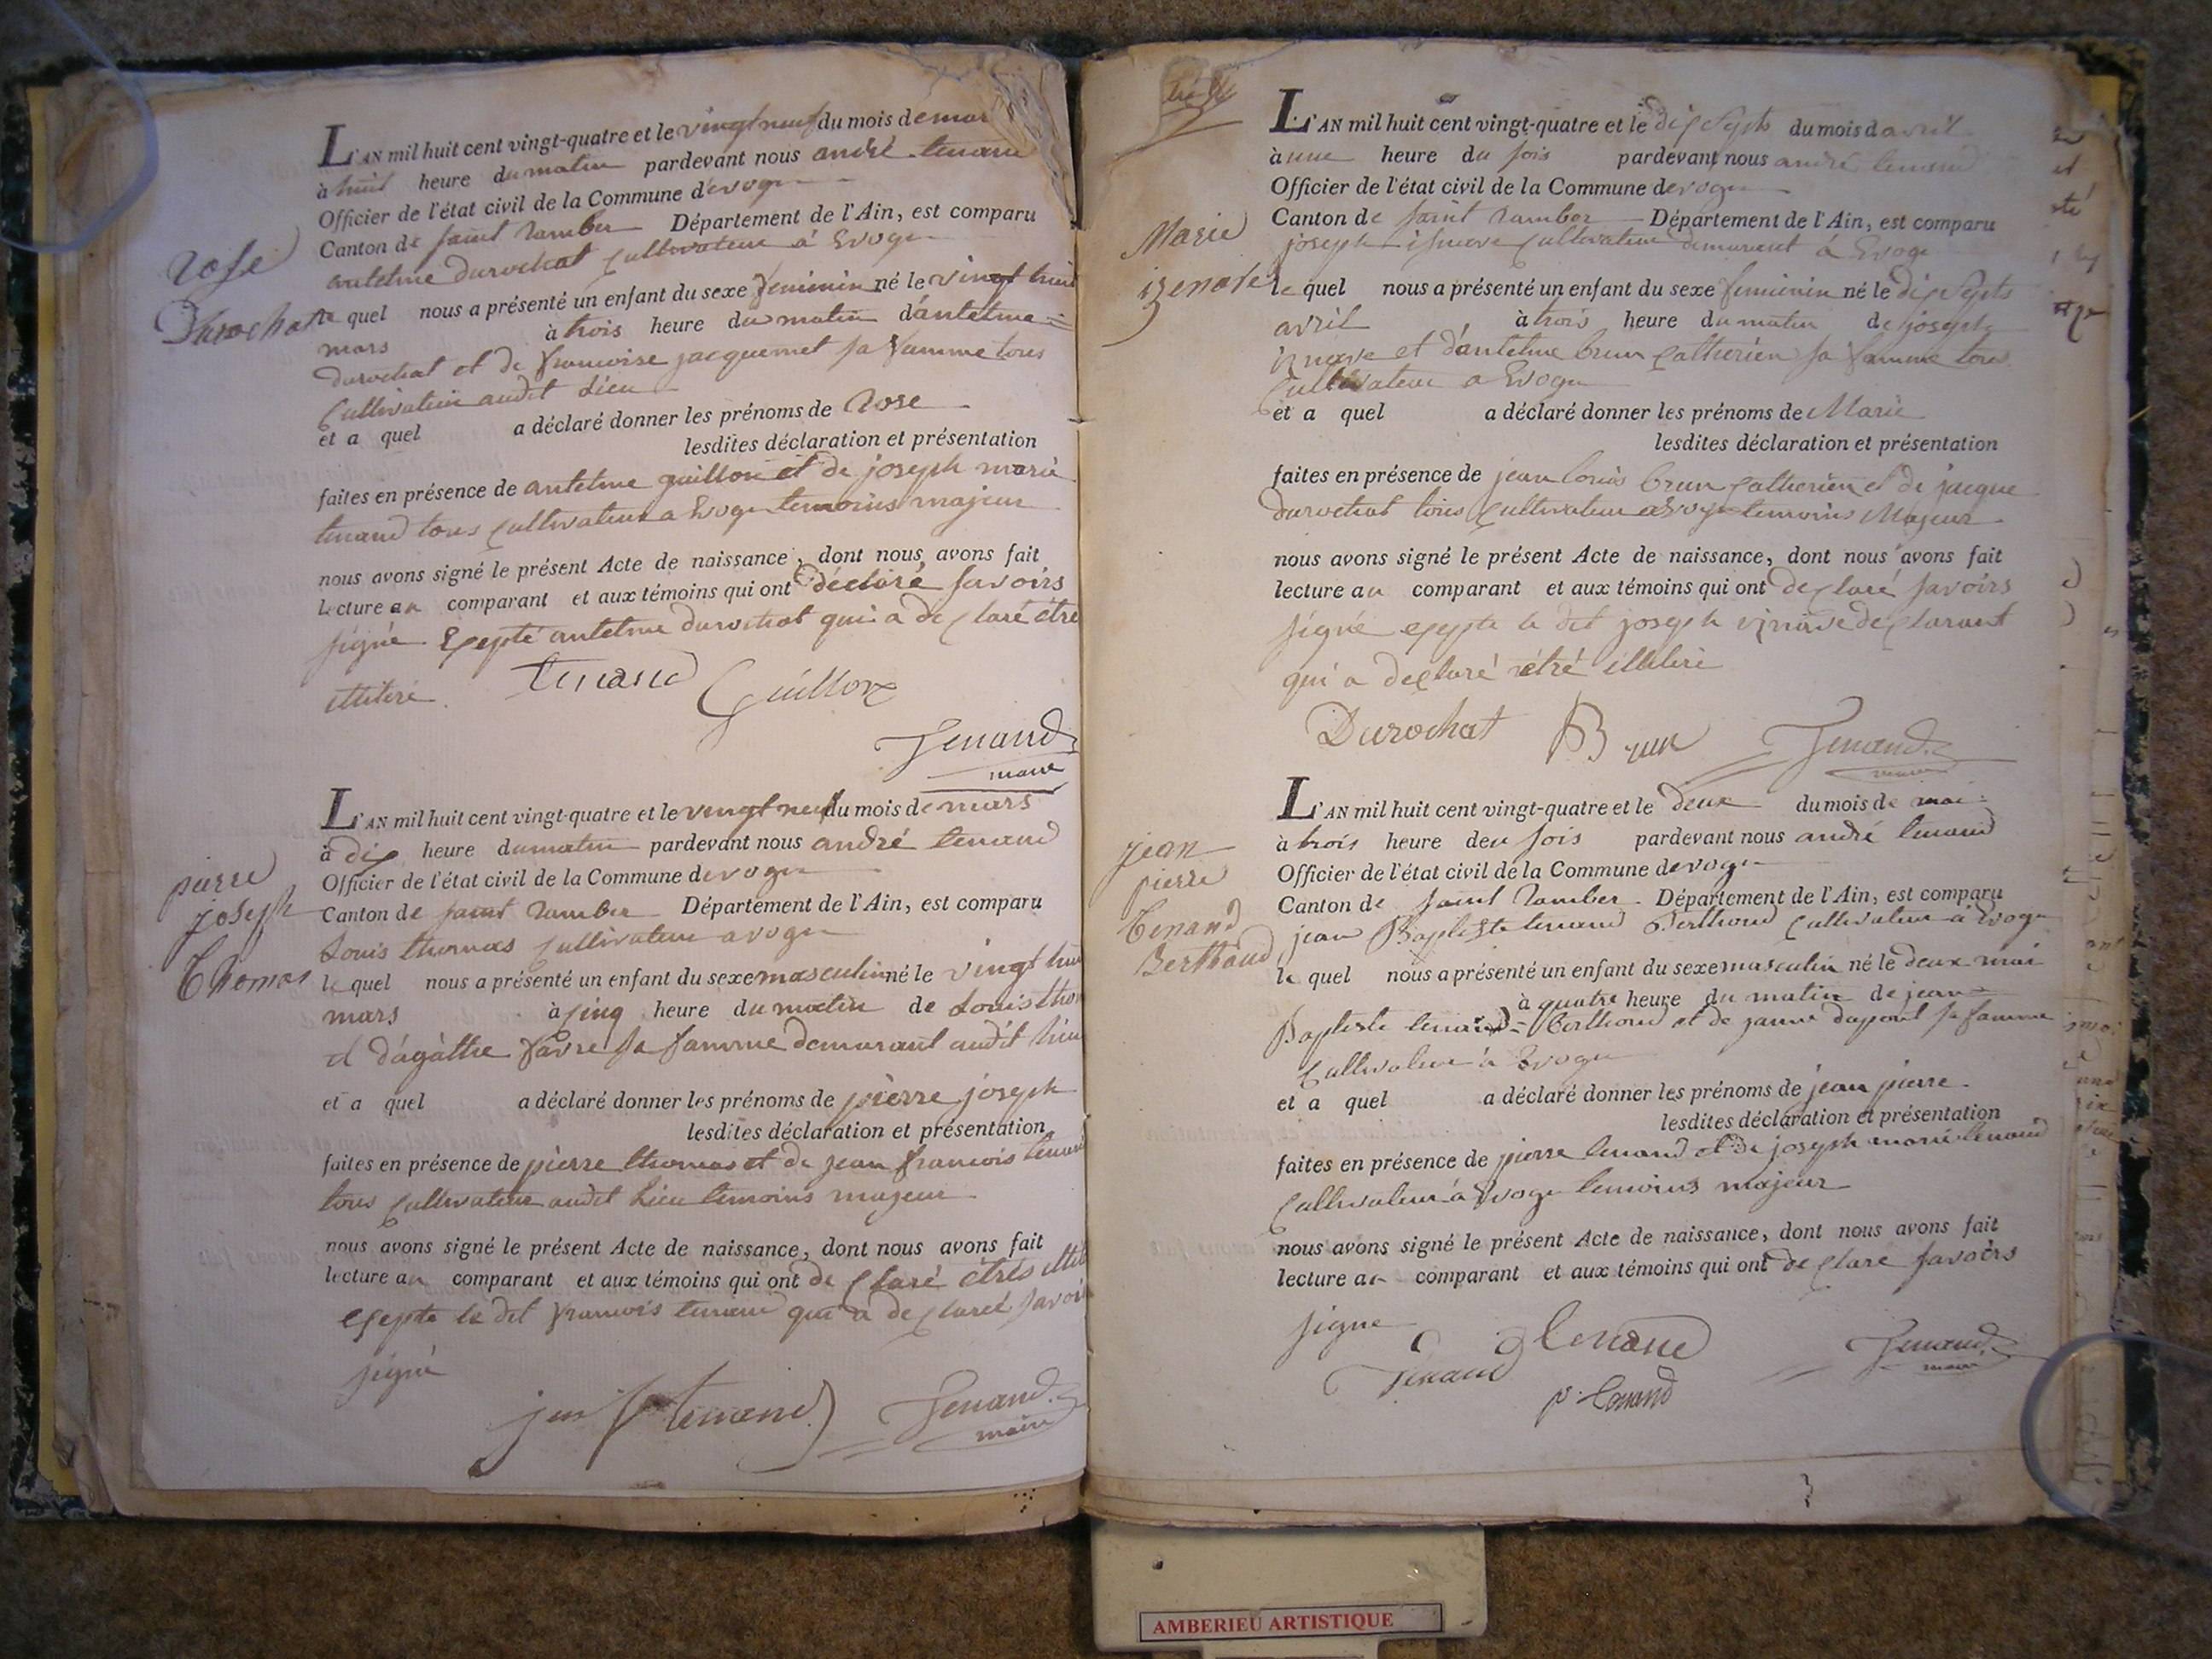 rose
Durochat
L'AN mil huit cent vingt-quatre et le vingt neuf du mois de mar
à huit heure du matin pardevant nous andré tenand
Officier de l'état civil de la Commune d'evoge
Canton de saint ramber Département de l'Ain, est comparu
antelme durochat cultivateur à Evoge
le quel nous a présenté un enfant du sexe feminin né le vingt huit
mars à trois heure du matin d'antelme
durochat et de francoise jacquemet sa famme tous
cultivateur audit Lieu
et a quel a déclaré donner les prénoms de Rose
lesdites déclaration et présentation
faites en présence de antelme guillon et de joseph marie
tenand tous cultivateur a Evoge temoins majeur
nous avons signé le présent Acte de naissance, dont nous avons fait
lecture au comparant et aux témoins qui ont déclaré savoirs
signé Exepté antelme durochat qui a declaré étre
illitéré.
tenand Guillon
Tenand
maire
pierre
joseph
Thomas
L'AN mil huit cent vingt-quatre et le vingt neuf du mois de mars
à dix heure du matin pardevant nous andré tenand
Officier de l'état civil de la Commune d'evoge
Canton de saint ramber Département de l'Ain, est comparu
Louis thomas cultivateur a voge
le quel nous a présenté un enfant du sexe masculin né le vingt hui
mars à cinq heure du matin de Louis tho
et d'agathe favre sa famme demurant audit lieu
et a quel a déclaré donner les prénoms de pierre joseph
lesdites déclaration et présentation
faites en présence de pierre thomas et de jean francois tenand
tous cultivateur audit Lieu temoins majeur
nous avons signé le présent Acte de naissance, dont nous avons fait
lecture au comparant et aux témoins qui ont declaré étres illit
exepte le dit francois tenand qui a declaré savoi
signé
jean f tenand
Tenand
maire
Marie
izenave
L'AN mil huit cent vingt-quatre et le dix septs du mois d avril
à une heure du sois pardevant nous andré tenand
Officier de l'état civil de la Commune d evoge
Canton de saint ramber Département de l'Ain, est comparu
joseph cultivateur demurant à Evoge
le quel nous a présenté un enfant du sexe feminin né le dix septs
avril à trois heure du matin de joseph
et d'antelme brun catherien sa famme tous
cultivateur a Evoge
et a quel a déclaré donner les prénoms de Marie
lesdites déclaration et présentation
faites en présence de jean louis brun catherien et de jacque
durochat tous cultivateur a Evoge temoins Majeur
nous avons signé le présent Acte de naissance, dont nous avons fait
lecture au comparant et aux témoins qui ont declaré savoirs
signé exepte le dit joseph declarant
qui a declaré étré illitéré
Durochat Brun Tenand
maire
jean
pierre
Tenand
Berthoud
L'AN mil huit cent vingt-quatre et le deux du mois de mai
à trois heure deu sois pardevant nous andré tenand
Officier de l'état civil de la Commune d evoge
Canton de saint ramber. Département de l'Ain, est comparu
jean Baptiste tenand Berthoud cultivateur a Evoge
le quel nous a présenté un enfant du sexe masculin né le deux mai
à quatre heure du matin de jean
Baptiste tenand Berthoud et de janne dupont sa famme
cultivateur à Evoge
et a quel a déclaré donner les prénoms de jean pierre
lesdites déclaration et présentation
faites en présence de pierre tenand et de joseph marie tenand
cultivateur à Evoge temoins majeur
nous avons signé le présent Acte de naissance, dont nous avons fait
lecture au comparant et aux témoins qui ont declaré savoirs
signe
tenand
Tenand
p. tenand
Tenand
maire
AMBERIEU ARTISTIQUE